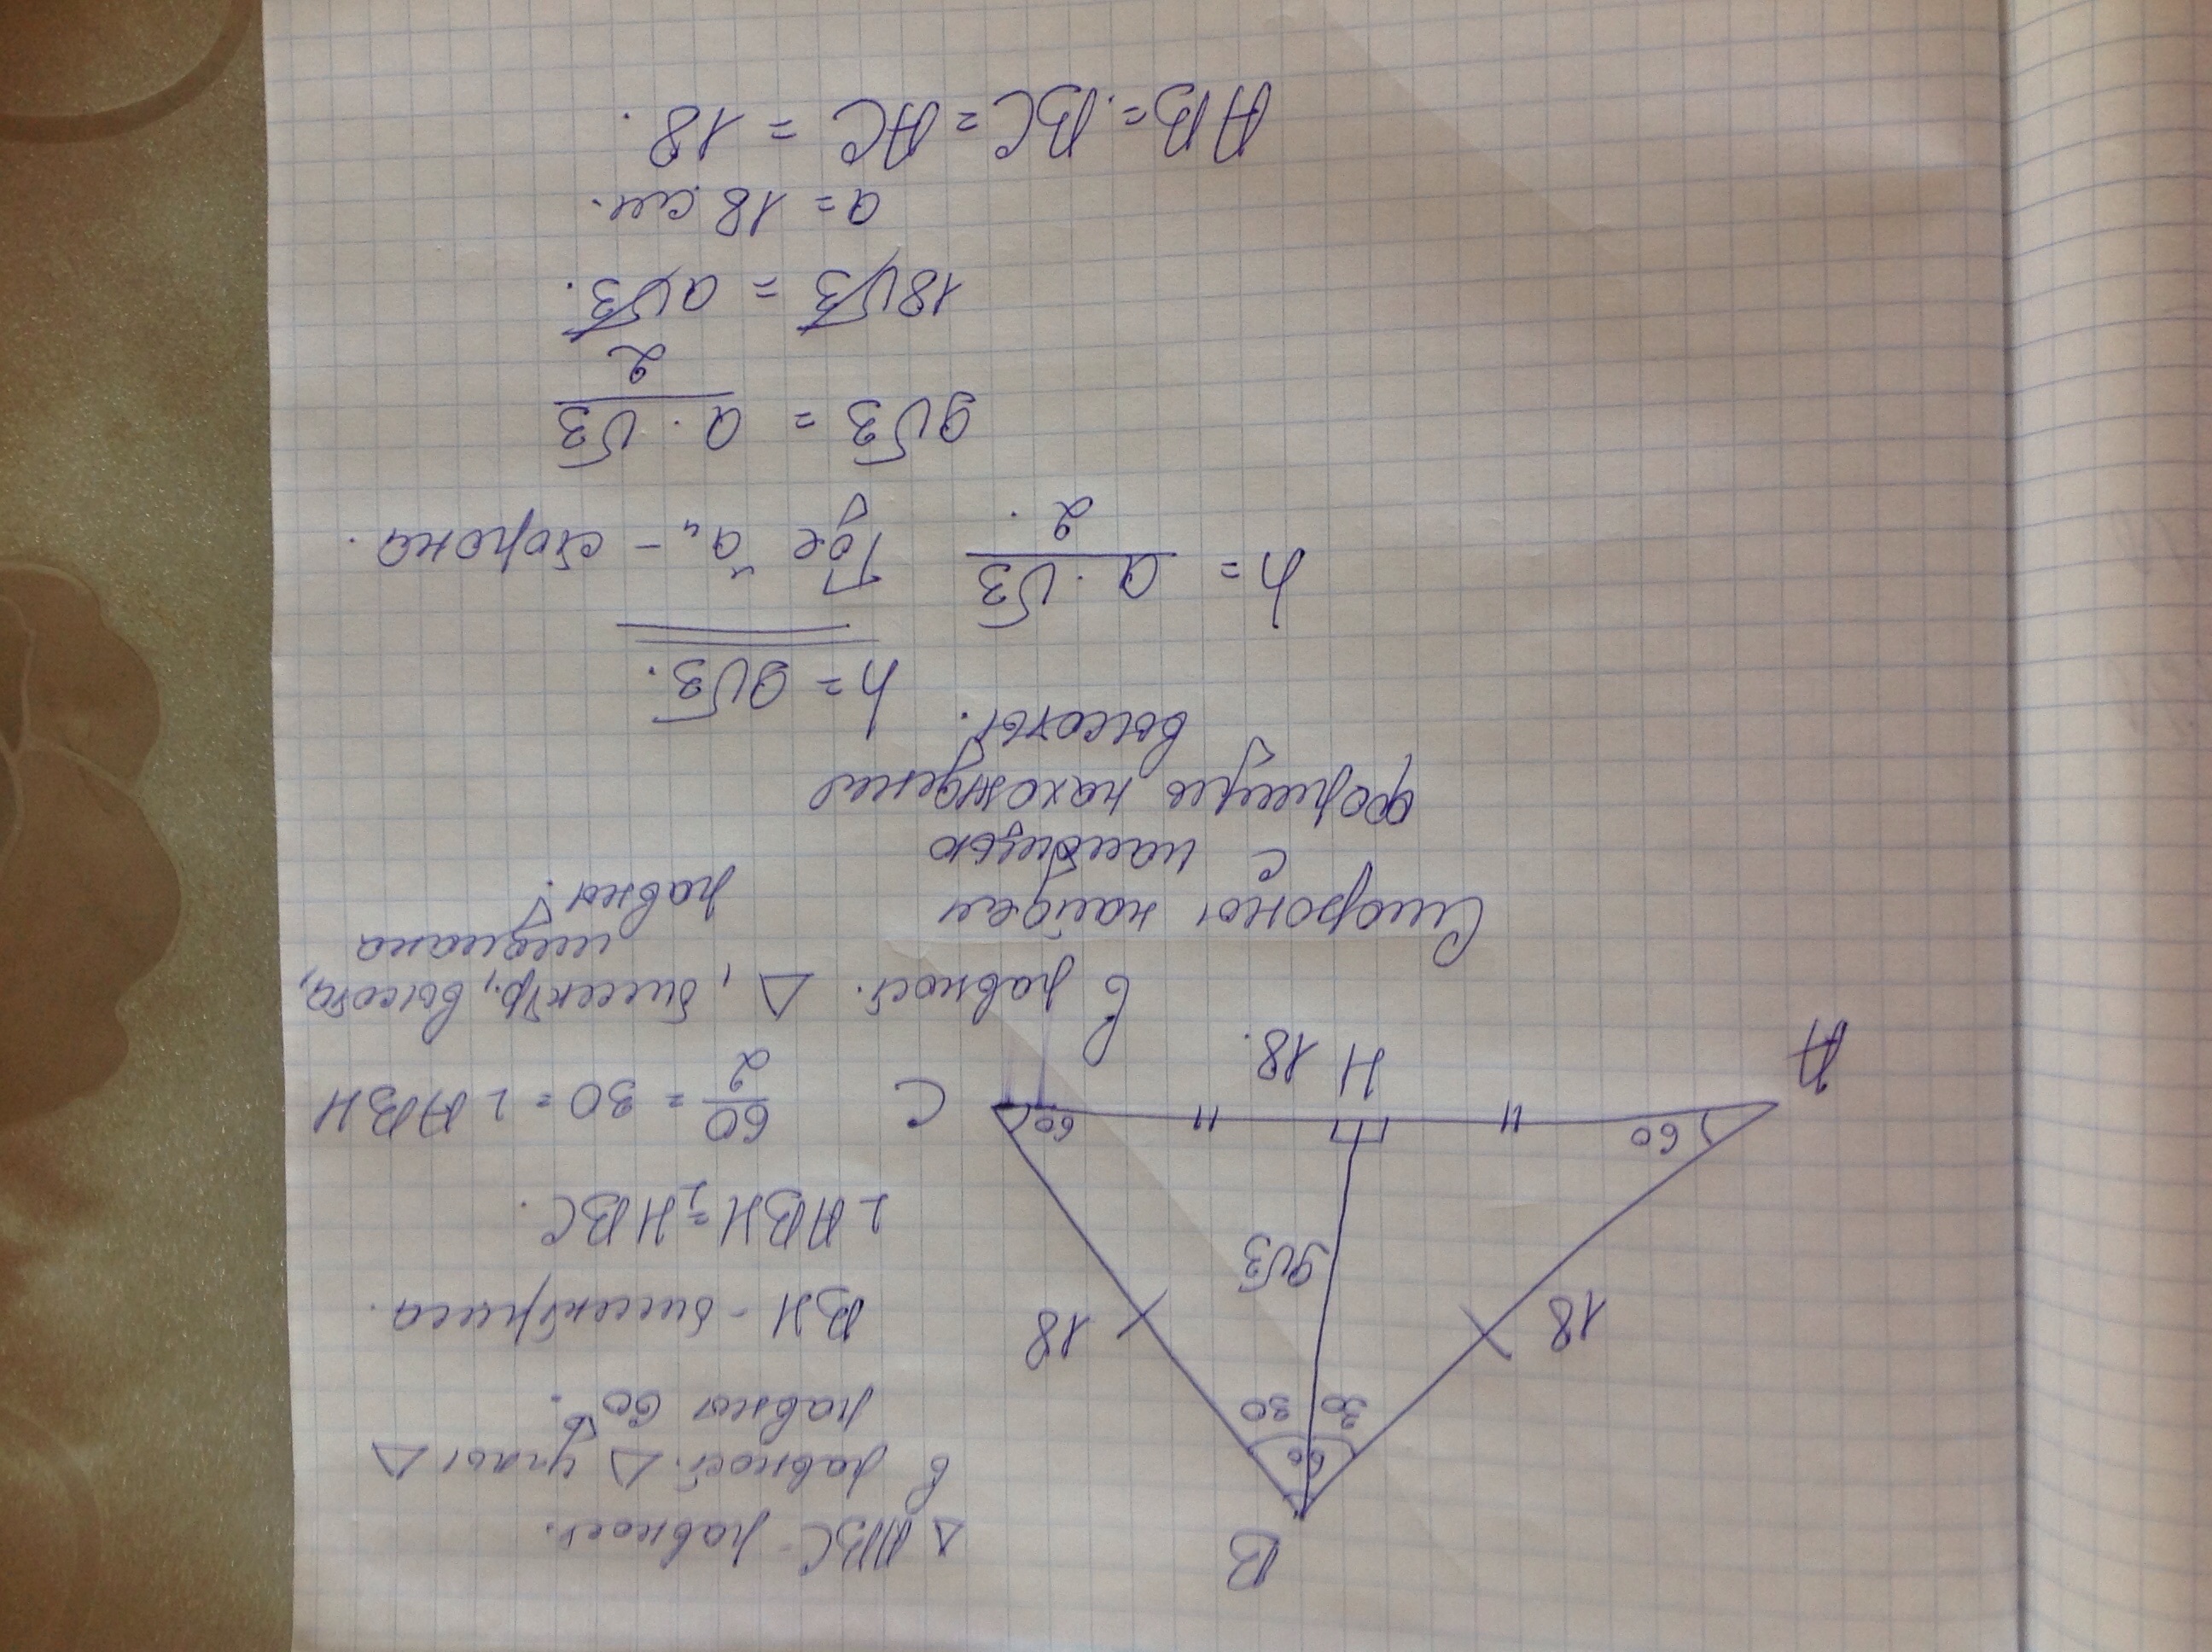 B
△ ABC - равност.
В равност. △ углы △
равны 60°.
BH - биссектриса.
∠ ABH = HBC.
60/2 = 30 = ∠ ABH
60
30 30
18
18
9√3
60
60
A
H
18.
C
В равност. △, биссектр., высота,
медиана
равны.
Стороны найдем
с помощью
формулы нахождения
высоты.
h = 9√3.
h = a · √3 / 2. Где "a" - сторона.
9√3 = a · √3 / 2
18√3 = a√3.
a = 18 см.
AB = BC = AC = 18.